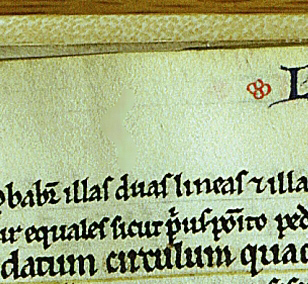 L
babr̃ illas duas lineas ⁊ illa
ur equales sicut p̃us po͂ito ped
datum circulum quad